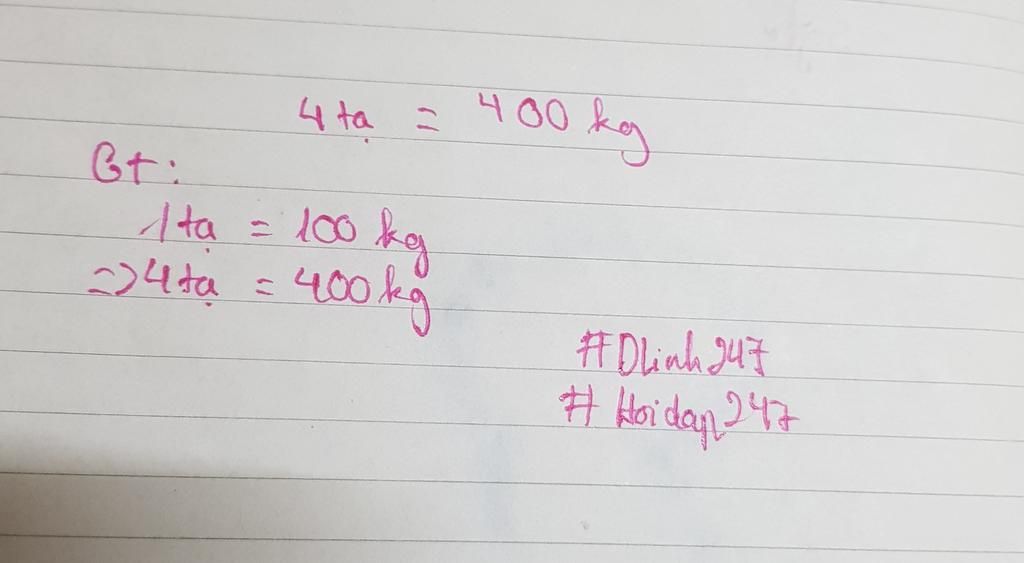 4 tạ = 400 kg
Gt:
1 tạ = 100 kg
=> 4 tạ = 400 kg
#DLinh247
#Hoidap247